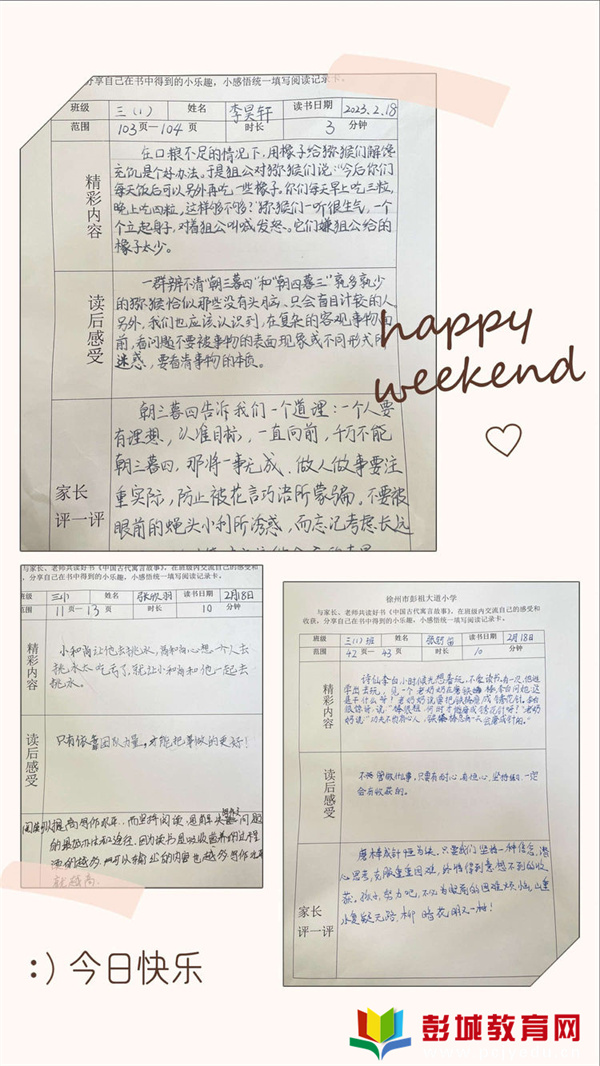 分享自己在书中得到的小乐趣，小感悟统一填写阅读记录卡。
班级 三(1) 姓名 李昊轩 读书日期 2023.2.18
范围 103页—104页 时长 3 分钟
精彩内容
在口粮不足的情况下，用橡子给猕猴们解馋
充饥是个好办法。于是狙公对猕猴们说：“今后你们
每天饭后可以另外再吃一些橡子。你们每天早上吃三粒，
晚上吃四粒，这样够不够？”猕猴们一听很生气，一个
个立起身子，对着狙公叫喊发怒。它们嫌狙公给的
橡子太少。
读后感受
一群辨不清“朝三暮四”和“朝四暮三”孰多孰少
的猕猴恰似那些没有头脑、只会盲目计较的人
另外，我们也应该认识到，在复杂的客观事物面
前，看问题不要被事物的表面现象或不同形式所
迷惑，要看清事物的本质。
happy
weekend
家长
评一评
朝三暮四告诉我们一个道理：一个人要
有理想，认准目标，一直向前，千万不能
朝三暮四，那将一事无成、做人做事要注
重实际，防止被花言巧语所蒙骗。不要被
眼前的蝇头小利所诱惑，而忘记考虑长远
与家长、老师共读好书《中国古代寓言故事》，在班级内交流自己的感受和
，分享自己在书中得到的小乐趣，小感悟统一填写阅读记录卡。
三小 姓名 张欣羽 读书日期 2月18日
范围 11页—13页 时长 10 分钟
精彩内容
小和尚让他去挑水，
挑水太吃亏了，就让小和尚和他一起去
挑水。
读后感受
只有依靠团队力量，才能把事做的更好！
的最好办法和途径。因为读书是吸收营养的过程
就越高。
徐州市彭祖大道小学
与家长、老师共读好书《中国古代寓言故事》，在班级内交流自己的感受和
收获，分享自己在书中得到的小乐趣，小感悟统一填写阅读记录卡。
班级 三(1)班 姓名 读书日期 2月18日
范围 42页— 43页 时长 10 分钟
精彩内容
诗仙李白小时候光想着玩，不爱读书。有一次，他逃
学出去玩，见一个老奶奶在磨铁棒，李白问她这
是干什么呀？老奶奶说要把铁棒磨成绣花针。李白
奶说“功夫不负有心人，
读后感受
不管做什么事，只要有耐心、有恒心、坚持做，一定
会有收获的。
家长
评一评
磨棒成针恒为诀，只要我们坚持一种信念，潜
心思考，克服重重困难，终将得到意想不到的收
获。孩子，努力吧，不必为眼前的困难烦恼，山重
水复疑无路，柳暗花明又一村！
:) 今日快乐
彭城教育网